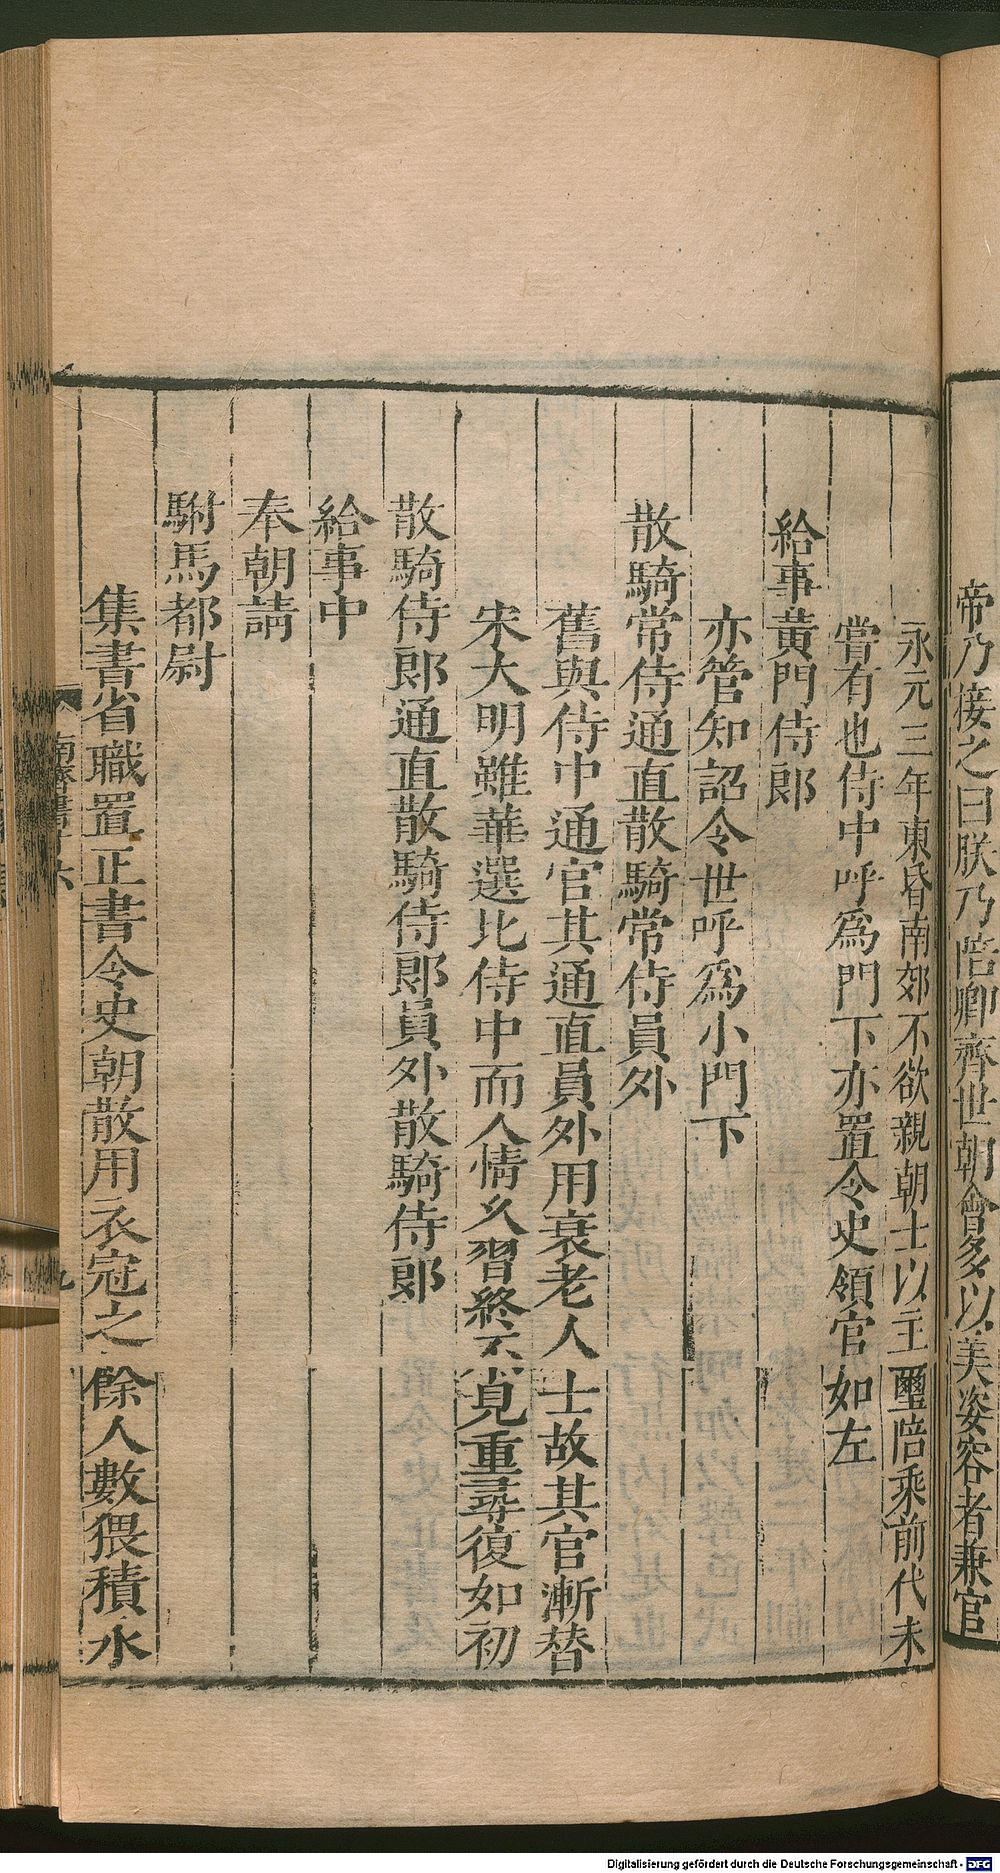 帝乃接之曰朕乃陪卿齊世朝會多以美姿容者兼官
永元三年東昏南郊不欲親朝士以主璽陪乘前代未
嘗有也侍中呼爲門下亦置令史領官如左
給事黃門侍郎
亦管知詔令世呼爲小門下
散騎常侍通直散騎常侍員外
舊與侍中通官其通直員外用衰老人士故其官漸替
宋大明雖華選比侍中而人情久習終不見重尋復如初
散騎侍郎通直散騎侍郎員外散騎侍郎
給事中
奉朝請
駙馬都尉
集書省職置正書令史朝散用衣冠之餘人數猥積永
南齊書
九
Digitalisierung gefördert durch die Deutsche Forschungsgemeinschaft - DFG